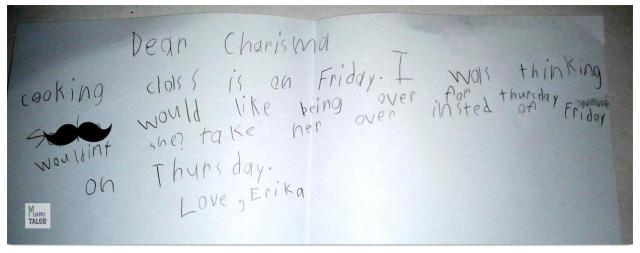 Dear Charisma
cooking class is on Friday. I was thinking
would like being over for thursday
wouldint she? take her over insted of Friday
on Thursday.
Love, Erika
Mami
TALES